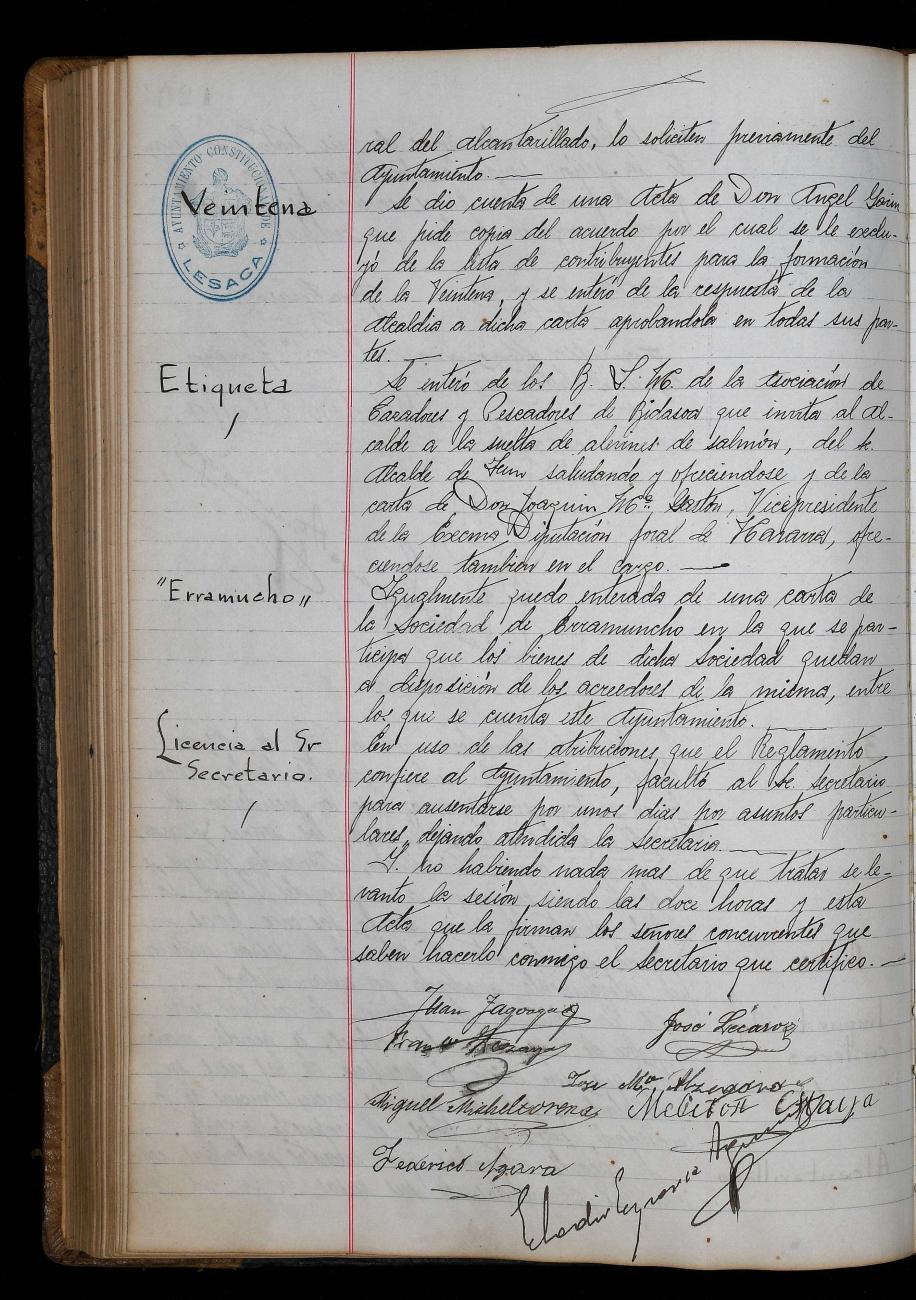 ral del alcantarillado, lo soliciten previamente del
Ayuntamiento.
AYUNTAMIENTO CONSTITUCIONAL DE
LESACA
Veintena
Se dio cuenta de una Acta de Don Angel
que pide copia del acuerdo por el cual se le exclu-
yó de la lista de contribuyentes para la formación
de la Veintena, y se enteró de la respuesta de la
Alcaldia a dicha carta aprobandola en todas sus par-
tes.
Etiqueta
Se enteró de los B. L. M. de la Asociación de
Cazadores y Pescadores de Bidasoa que invita al Al-
calde a la suelta de alevines de salmón, del Sr.
Alcalde de Irun saludando y ofreciendose y de la
carta de Don Joaquin Mª. Gastón, Vicepresidente
de la Excma Diputación foral de Navarra, ofre-
ciendose tambien en el cargo.
"Erramucho"
Igualmente quedo enterada de una carta de
la Sociedad de Erramuncho en la que se par-
ticipa que los bienes de dicha Sociedad quedan
a disposición de los acreedores de la misma, entre
los que se cuenta este Ayuntamiento.
Licencia al Sr
Secretario.
En uso de las atribuciones que el Reglamento
confiere al Ayuntamiento, facultó al Sr. Secretario
para ausentarse por unos dias por asuntos particu-
lares, dejando atendida la Secretaria
Y no habiendo nada mas de que tratar se le-
vanto la sesión, siendo las doce horas y esta
Acta que la firman los señores concurrentes que
saben hacerlo conmigo el Secretario que certifico.
Juan
José Lecaroz
José Mª
Miguel Michelcorena
Meliton
Federico
Eladio